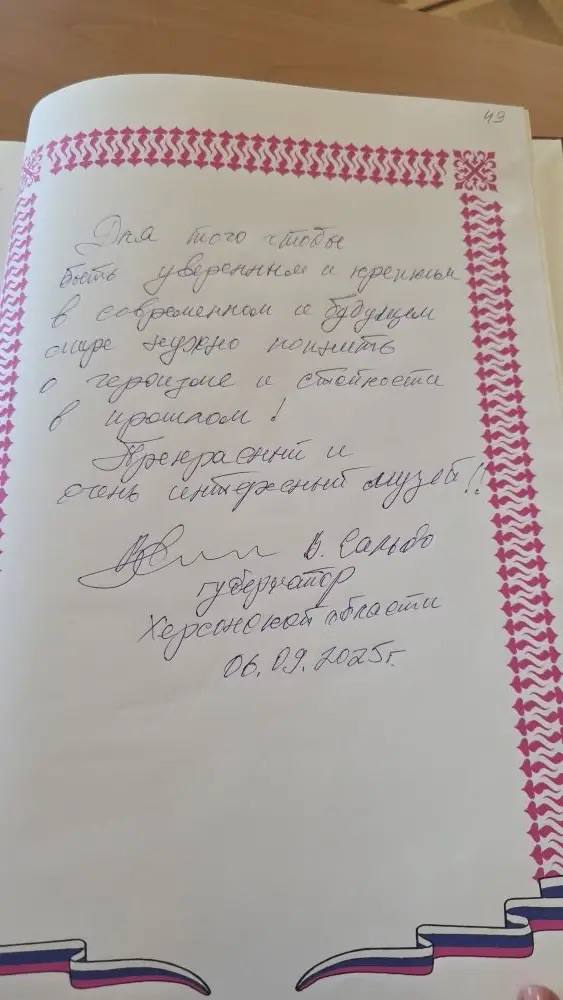 49
Для того чтобы
быть уверенным и крепким
в современном и будущем
мире нужно помнить
о героизме и стойкости
в прошлом!
Прекрасный и
очень интересный музей!!
В. Сальдо
губернатор
Херсонской области
06.09.2025г.